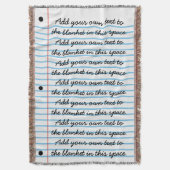 Add your own text to
the blanket in this space
Add your own text to
the blanket in this space
Add your own text to
the blanket in this space
Add your own text to
the blanket in this space
Add your own text to
the blanket in this space
Add your own text to
the blanket in this space